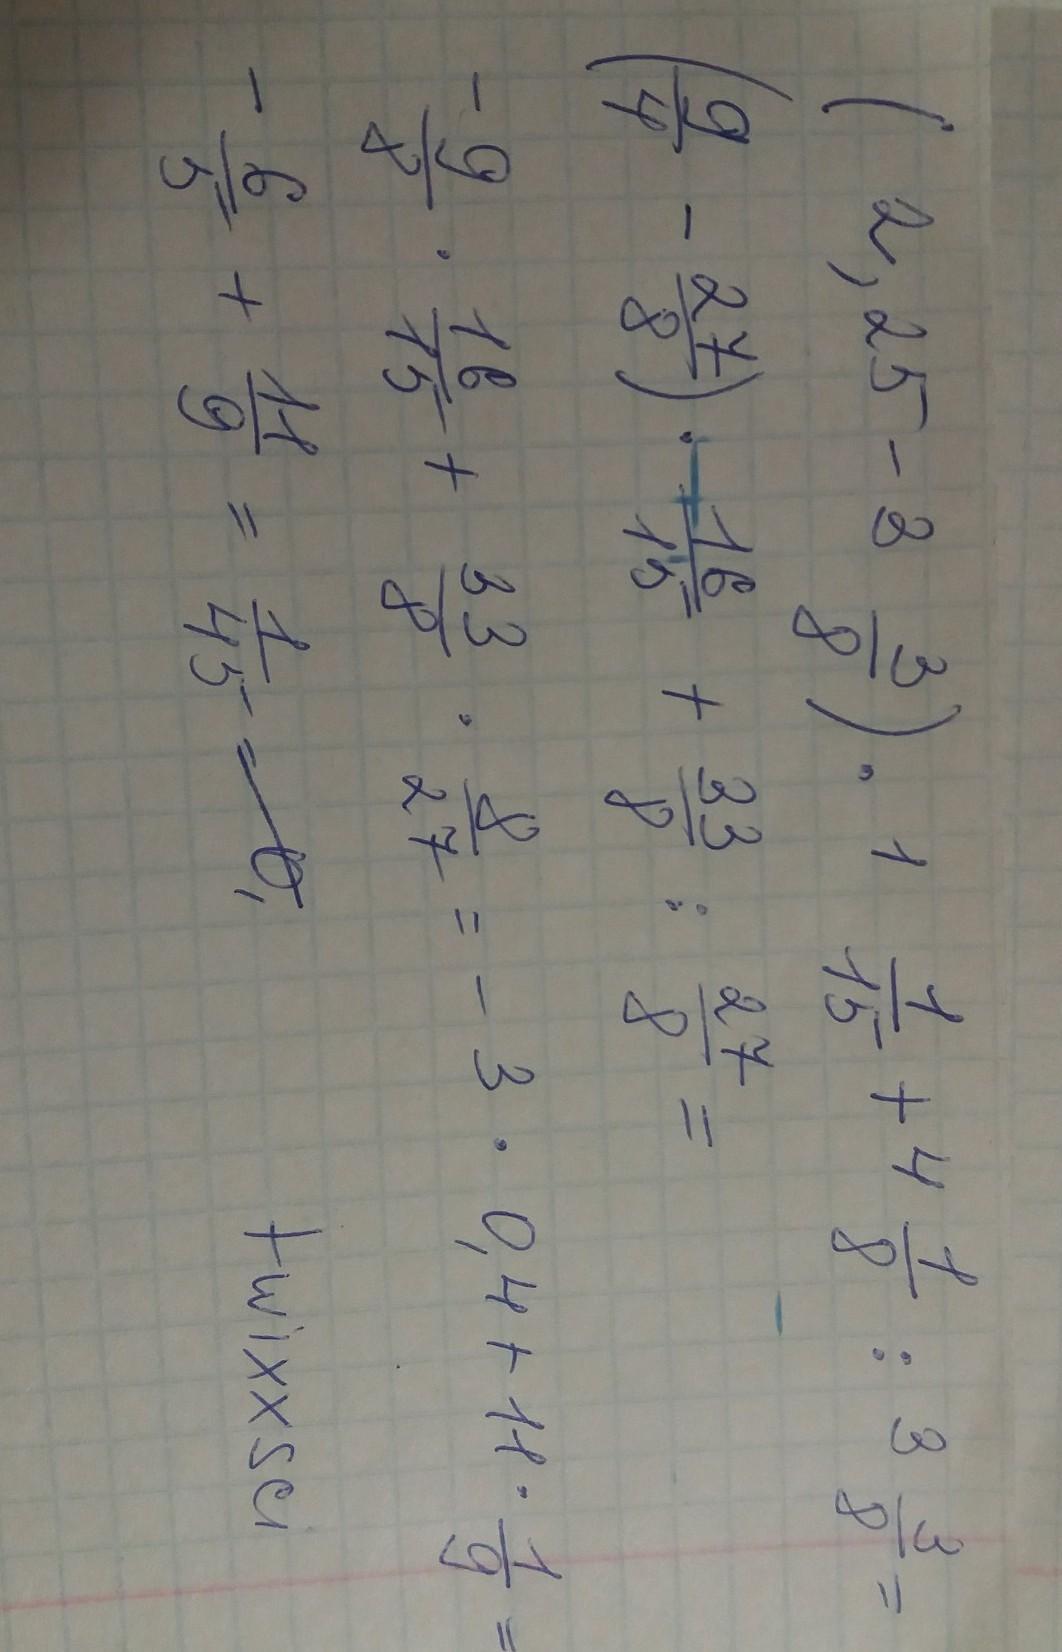 ( 2,25 - 3 3/8 ) · 1 1/15 + 4 1/8 : 3 3/8 =
( 9/4 - 27/8 ) · 16/15 + 33/8 : 27/8 =
- 9/8 · 16/15 + 33/8 · 8/27 = - 3 · 0,4 + 11 · 1/9 =
- 6/5 + 11/9 = 1/45
twixxsci